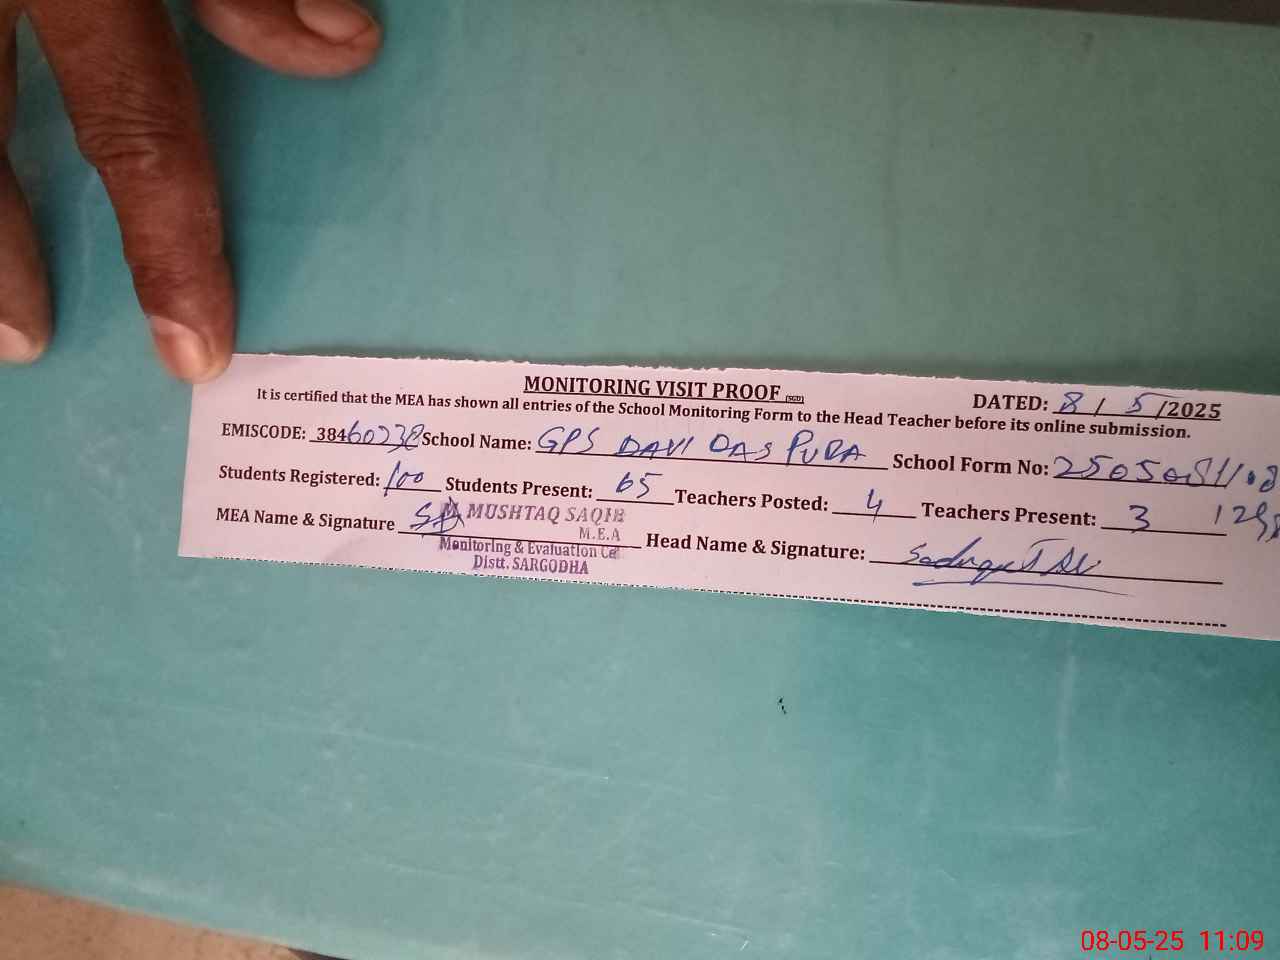 MONITORING VISIT PROOF (SGD)
DATED: 8 / 5 /2025
It is certified that the MEA has shown all entries of the School Monitoring Form to the Head Teacher before its online submission.
EMISCODE: 38460238 School Name: GPS DAVI DAS PURA School Form No:
Students Registered: 100 Students Present: 65 Teachers Posted: 4 Teachers Present: 3
MEA Name & Signature Head Name & Signature:
M. MUSHTAQ SAQIB
M.E.A
Monitoring & Evaluation Ce
Distt. SARGODHA
08-05-25 11:09